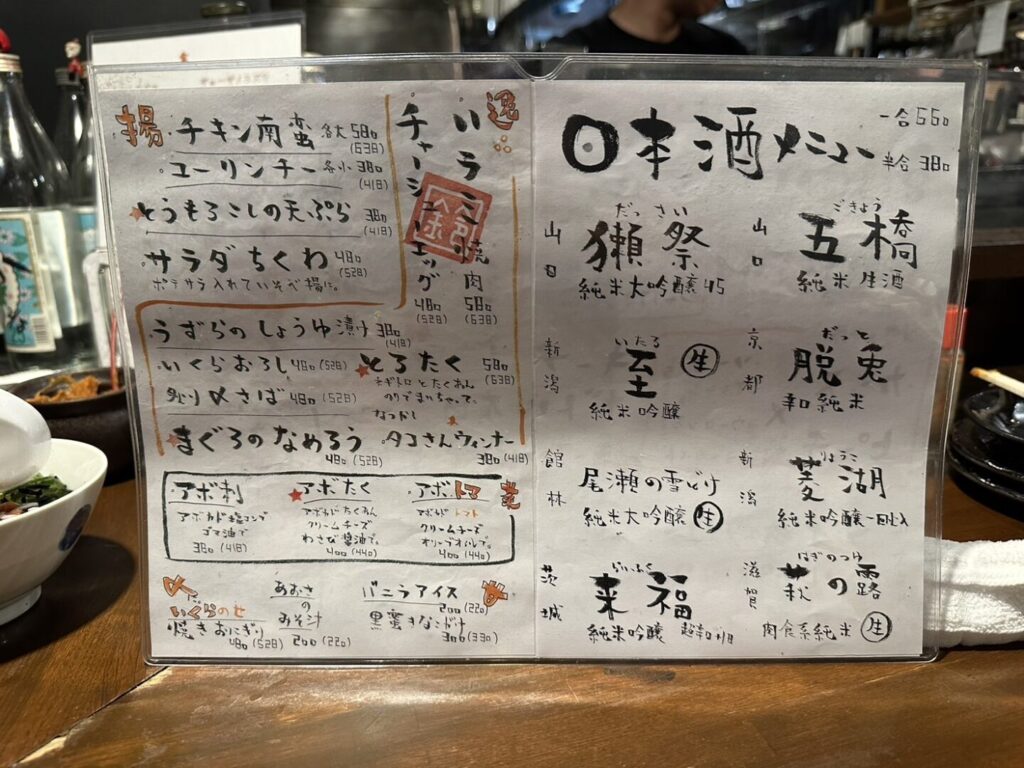 揚
チキン南蛮 各大 580
(638)
ユーリンチー 各小 380
(418)
★とうもろこしの天ぷら 380
(418)
サラダちくわ 480
(528)
ポテサラ入れていそべ揚げに。
逸
ハラミ焼肉
580
(638)
チャーシューエッグ
480
(528)
うずらのしょうゆ漬け 380
(418)
いくらおろし 480 (528)
★とろたく 580
(638)
ネギトロとたくあん
のりでまいちゃって。
〆さば 480 (528)
★まぐろのなめろう
480 (528)
なつかし
タコさんウィンナー
380 (418)
菜
アボ刺
アボカド塩コンブ
ゴマ油で
380 (418)
★アボたく
アボカドたくあん
クリームチーズ
わさび醤油で。
400 (440)
アボトマ
アボカドトマト
クリームチーズ
オリーブオイルで。
400 (440)
〆
いくらのせ
焼きおにぎり
480 (528)
あおさ
の
みそ汁
200 (220)
バニラアイス
200 (220)
黒蜜きなこがけ
300 (330)
日本酒メニュー
一合 550
半合 380
山口
だっさい
獺祭
純米大吟醸45
山口
ごきょう
五橋
純米生酒
新潟
いたる
至 生
純米吟醸
京都
だっと
脱兎
辛口純米
館林
尾瀬の雪どけ
純米大吟醸 生
新潟
りょうこ
菱湖
純米吟醸一回火入
茨城
らいふく
来福
純米吟醸 超辛口
滋賀
はぎのつゆ
萩の露
肉食系純米 生